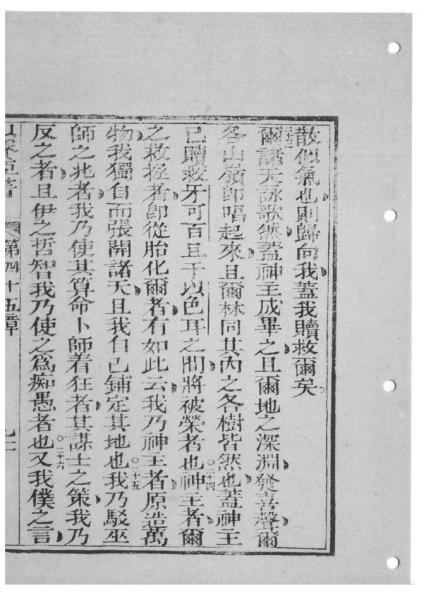 散似氣也則歸向我蓋我贖救爾矣。
二十三爾諸天詠歌然蓋神主成畢之且爾地之深淵發喜聲爾
各山嶺卽唱起來且爾林同其內之各樹皆然也蓋神主
已贖救牙可百且于以色耳之間將被榮者也。二十四神主者爾
之救拯者卽從胎化爾者有如此云我乃神主者原造萬
物我獨自而張開諸天且我自己鋪定其地也。二十五我乃駁巫
師之兆者我乃使其算命卜師着狂者其謀士之策我乃
反之者且伊之哲智我乃使之為痴愚者也。二十六又我僕之言
第四十五章